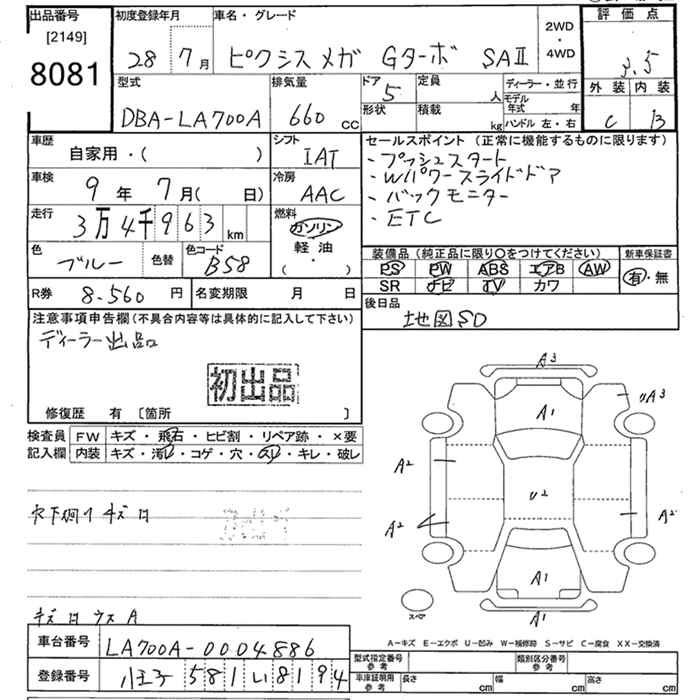 出品番号 初度登録年月 車名・グレード 2WD・4WD 評価点
[2149]
8081 28 7月 ピクシスメガ Gターボ SAⅡ 3.5
型式 排気量 ドア 定員 人 ディーラー・並行 外装 内装
DBA-LA700A 660cc 5 形状 積載 kg モデル年式 年 ハンドル 左・右 C B
車歴 自家用・( ) シフト IAT
車検 9年 7月( 日) 冷房 AAC
走行 3万4千963km 燃料 ガソリン 軽油 ( ・ )
色 ブルー 色替 色コード B58
R券 8.560円 名変期限 月 日
セールスポイント (正常に機能するものに限ります)
・プッシュスタート
・Wパワースライドドア
・バックモニター
・ETC
装備品 (純正品に限り○をつけてください) 新車保証書
PS PW ABS エアB AW 有・無
SR ナビ TV カワ
後日品
地図SD
注意事項申告欄(不具合内容等は具体的に記入して下さい)
ディーラー出品
初出品
修復歴 有 〔箇所 〕
検査員 FW キズ・飛石・ヒビ割・リペア跡・×要
記入欄 内装 キズ・汚レ・コゲ・穴・スレ・キレ・破レ
A3
A1
UA3
A2
U2
A2
A2
A1
A1
スペア
A-キズ E-エクボ U-凹み W-補修跡 S-サビ C-腐食 XX-交換済
車台番号 LA700A-0004886
登録番号 八王子 581 い 8194
型式指定番号 参考 類別区分番号 参考
車庫証明用 参考 長さ cm 幅 cm 高さ cm